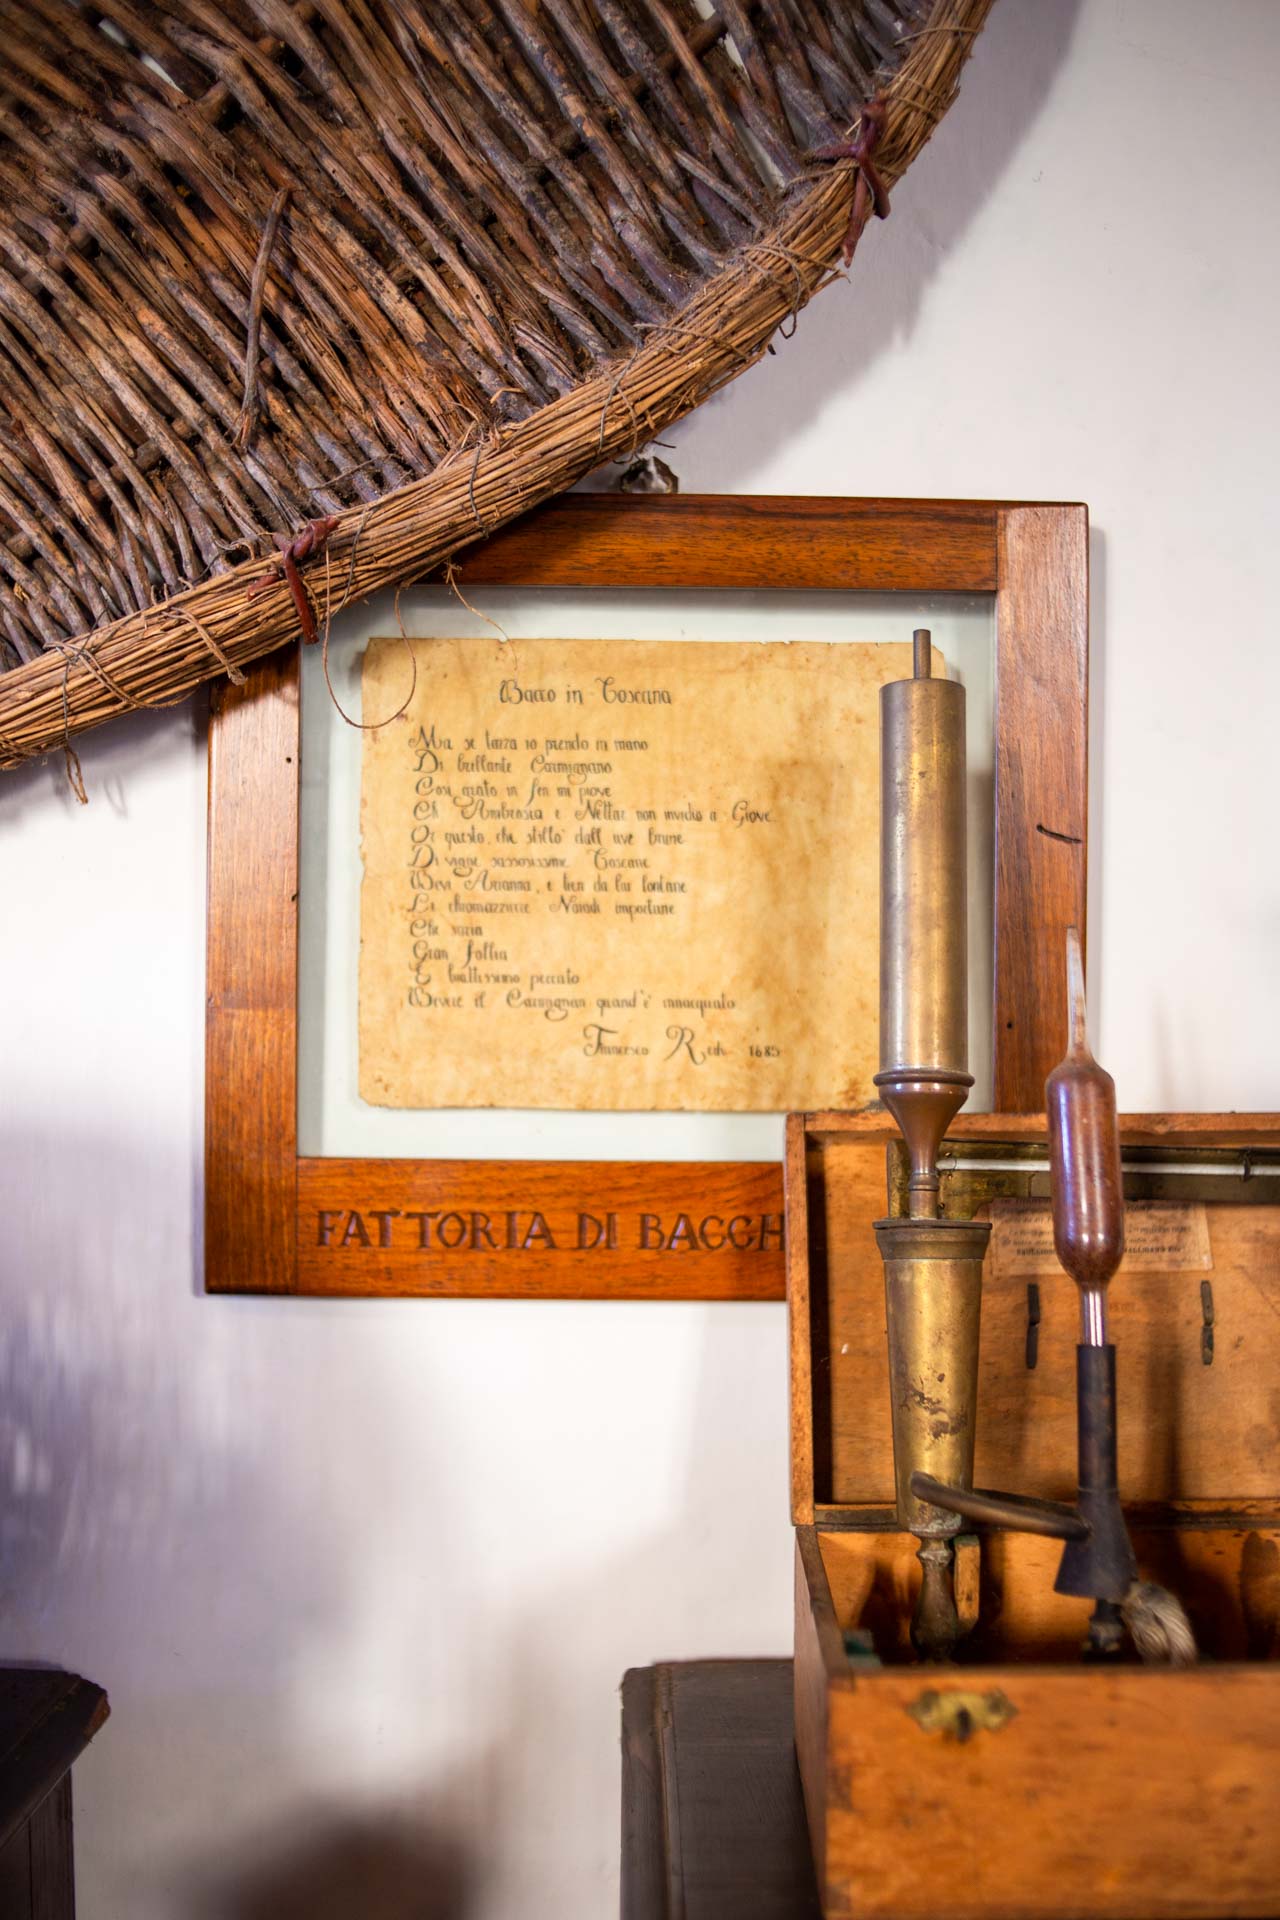 Bacco in Toscana
Ma se tazza io prendo in mano
Di brillante Carmignano
Così grato in sen mi piove
Ch Ambrosia e Nettar non invidio a Giove
Or questo, che stillò dall uve brune
Di vigne sassosissime Toscane
Bevi Arianna, e tien da lui lontane
Le chiomazzurre Naiadi importune
Che saria
Gran follia
E bruttissimo peccato
Bevere il Carmignan quand'è innacquato
Francesco Redi 1685
FATTORIA DI BACCH